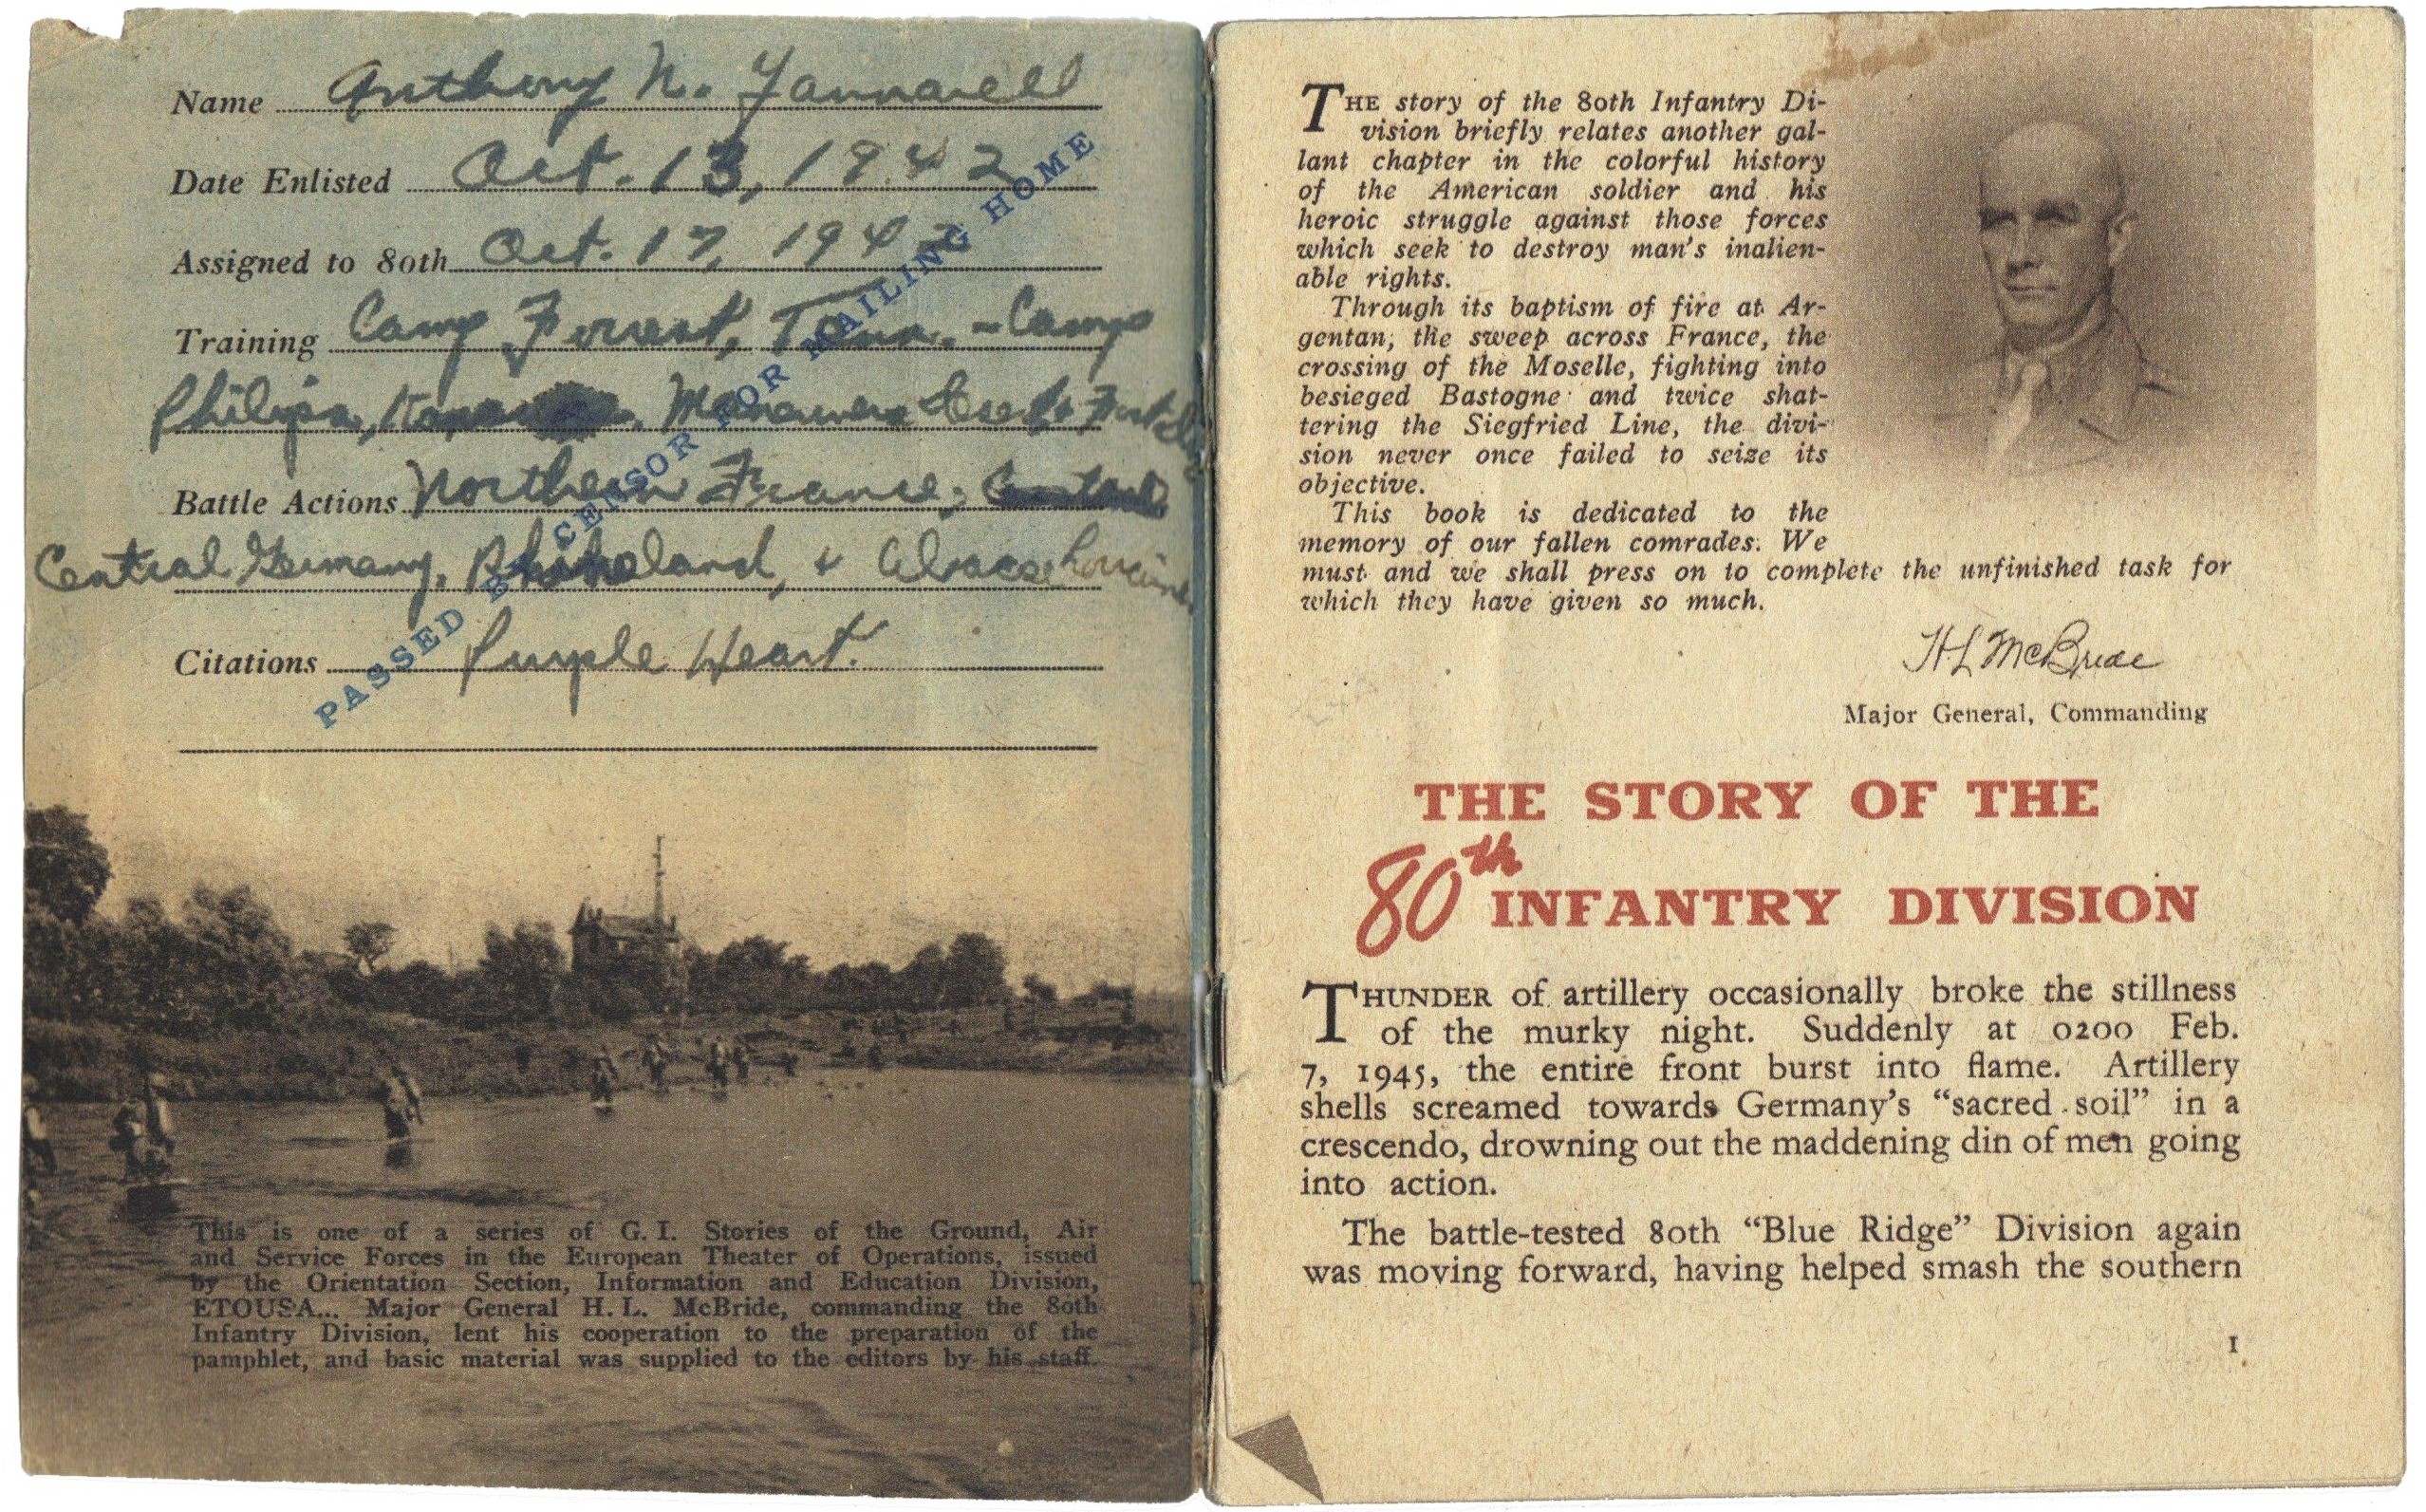 Name Anthony N. Yannarell
Date Enlisted Oct. 13, 1942
Assigned to 80th Oct. 17, 1942
Training Camp Forrest, Tenn. - Camp
Philips, Maneuvers
Battle Actions Northern France,
Central Germany, Rhineland, + Alsace Lorraine
Citations Purple Heart.
PASSED BY CENSOR FOR MAILING HOME
This is one of a series of G. I. Stories of the Ground, Air
and Service Forces in the European Theater of Operations, issued
by the Orientation Section, Information and Education Division,
ETOUSA... Major General H. L. McBride, commanding the 80th
Infantry Division, lent his cooperation to the preparation of the
pamphlet, and basic material was supplied to the editors by his staff.
THE story of the 80th Infantry Di-
vision briefly relates another gal-
lant chapter in the colorful history
of the American soldier and his
heroic struggle against those forces
which seek to destroy man's inalien-
able rights.
Through its baptism of fire at Ar-
gentan, the sweep across France, the
crossing of the Moselle, fighting into
besieged Bastogne and twice shat-
tering the Siegfried Line, the divi-
sion never once failed to seize its
objective.
This book is dedicated to the
memory of our fallen comrades. We
must and we shall press on to complete the unfinished task for
which they have given so much.
H L McBride
Major General, Commanding
THE STORY OF THE
80th INFANTRY DIVISION
THUNDER of artillery occasionally broke the stillness
of the murky night. Suddenly at 0200 Feb.
7, 1945, the entire front burst into flame. Artillery
shells screamed towards Germany's “sacred soil” in a
crescendo, drowning out the maddening din of men going
into action.
The battle-tested 80th “Blue Ridge” Division again
was moving forward, having helped smash the southern
1